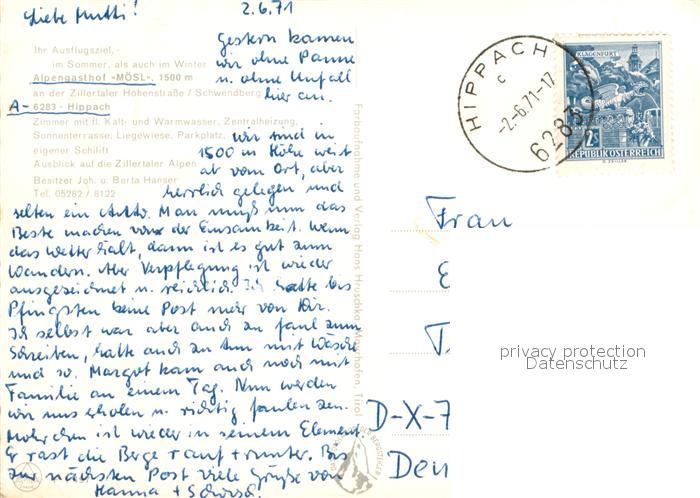 Liebe Mutti! 2.6.71
Ihr Ausflugsziel,-
im Sommer, als auch im Winter
Alpengasthof »MÖSL«, 1500 m
an der Zillertaler Höhenstraße / Schwendberg
A - 6283 - Hippach
Zimmer mit fl. Kalt- und Warmwasser, Zentralheizung,
Sonnenterrasse, Liegewiese, Parkplatz,
eigener Schilift
Ausblick auf die Zillertaler Alpen
Besitzer Joh. u. Berta Hanser
Tel. 05282 / 8122
gestern kamen
wir ohne Panne
u. ohne Unfall
hier an.
wir sind in
1500 m Höhe weit
ab vom Ort, aber
herrlich gelegen und
selten ein Auto. Man muß nun das
Beste machen von der Einsamkeit. Wenn
das Wetter hält, dann ist es gut zum
Wandern. Aber Verpflegung ist wieder
ausgezeichnet u. reichlich. Ich hatte bis
Pfingsten keine Post mehr von Dir.
Ich selbst war aber auch zu faul zum
Schreiben, hatte auch zu tun mit Wäsche
und so. Margot kam auch noch mit
Familie an einem Tag. Nun werden
wir uns erholen u. richtig faulenzen.
Mohrchen ist wieder in seinem Element.
Er rast die Berge rauf + runter. Bis
zur nächsten Post viele Grüße von
Hanna +
Farbaufnahme und Verlag Hans Hruschka, Mayrhofen, Tirol
HIPPACH
c
-2.-6.71-17
6283
KLAGENFURT
2S
REPUBLIK ÖSTERREICH
Frau
E
T.
D-X-7
Den
privacy protection
Datenschutz